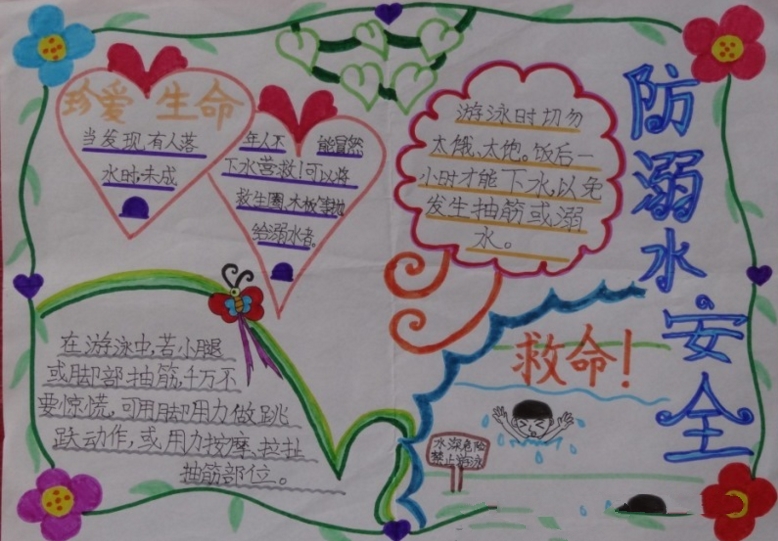 防溺水安全
珍爱 生命
当发现有人落
水时,未成
年人不 能冒然
下水营救!可以将
救生圈、木板等抛
给溺水者。
游泳时切勿
太俄、太饱。饭后一
小时才能下水,以免
发生抽筋或溺
水。
在游泳中,若小腿
或脚部抽筋,千万不
要惊慌,可用脚用力做跳
跃动作,或用力按摩、拉扯
抽筋部位。
救命!
水深危险
禁止游泳